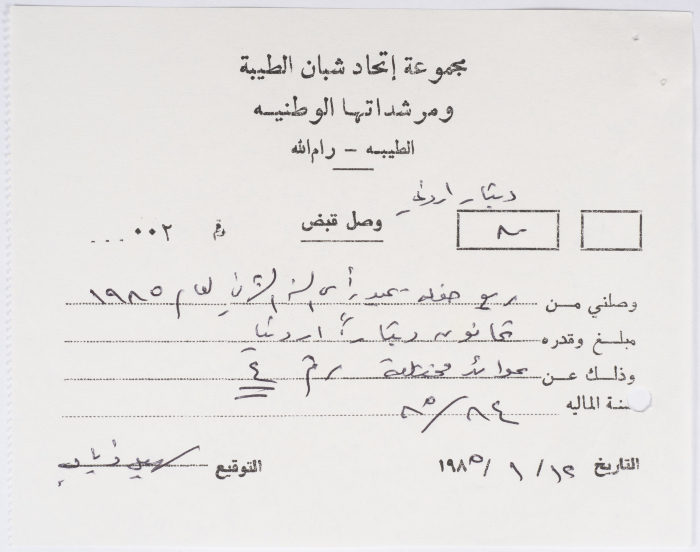 مجموعة إتحاد شبان الطيبة
ومرشداتها الوطنيه
الطيبه - رام الله
دينار اردني
٨٠
وصل قبض
رقم ٠٠٢....
وصلني من ريع حفلة عيد رأس السنة لعام ١٩٨٥
مبلغ وقدره ثمانون ديناراً اردنياً
وذلك عن عوائد مختلفة رقم ٤
سنة الماليه ٨٥/٨٤
التاريخ ١٢ / ١ / ١٩٨٥
التوقيع